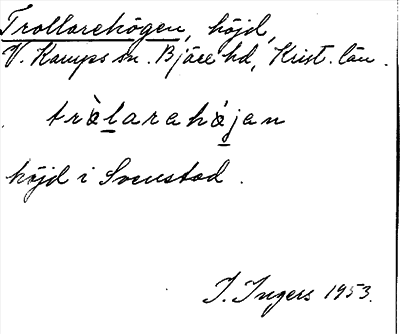 Trollarehögen, höjd,
V. Karups sn. Bjäre hd, Krist. län.
træ̀larehǿjen
höjd i Svenstad.
I. Ingers 1953.